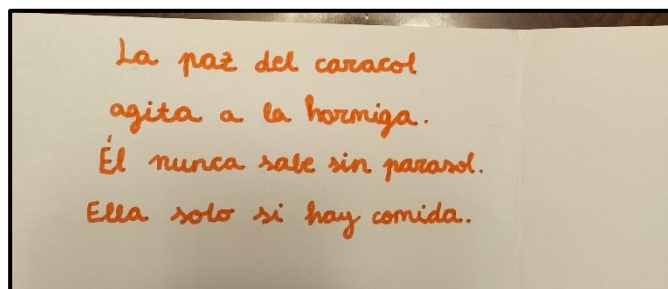 La paz del caracol
agita a la hormiga.
Él nunca sale sin parasol.
Ella solo si hay comida.